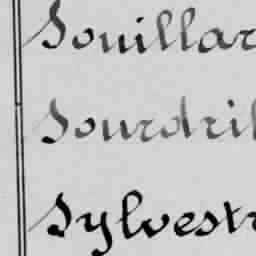 Souillar
Sourdril
Sylvestr